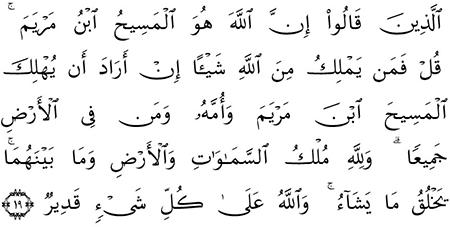 ٱلَّذِينَ قَالُوٓاْ إِنَّ ٱللَّهَ هُوَ ٱلۡمَسِيحُ ٱبۡنُ مَرۡيَمَۚ
قُلۡ فَمَن يَمۡلِكُ مِنَ ٱللَّهِ شَيۡـًٔا إِنۡ أَرَادَ أَن يُهۡلِكَ
ٱلۡمَسِيحَ ٱبۡنَ مَرۡيَمَ وَأُمَّهُۥ وَمَن فِي ٱلۡأَرۡضِ
جَمِيعٗاۗ وَلِلَّهِ مُلۡكُ ٱلسَّمَٰوَٰتِ وَٱلۡأَرۡضِ وَمَا بَيۡنَهُمَاۚ
يَخۡلُقُ مَا يَشَآءُۚ وَٱللَّهُ عَلَىٰ كُلِّ شَيۡءٖ قَدِيرٞ ١٩